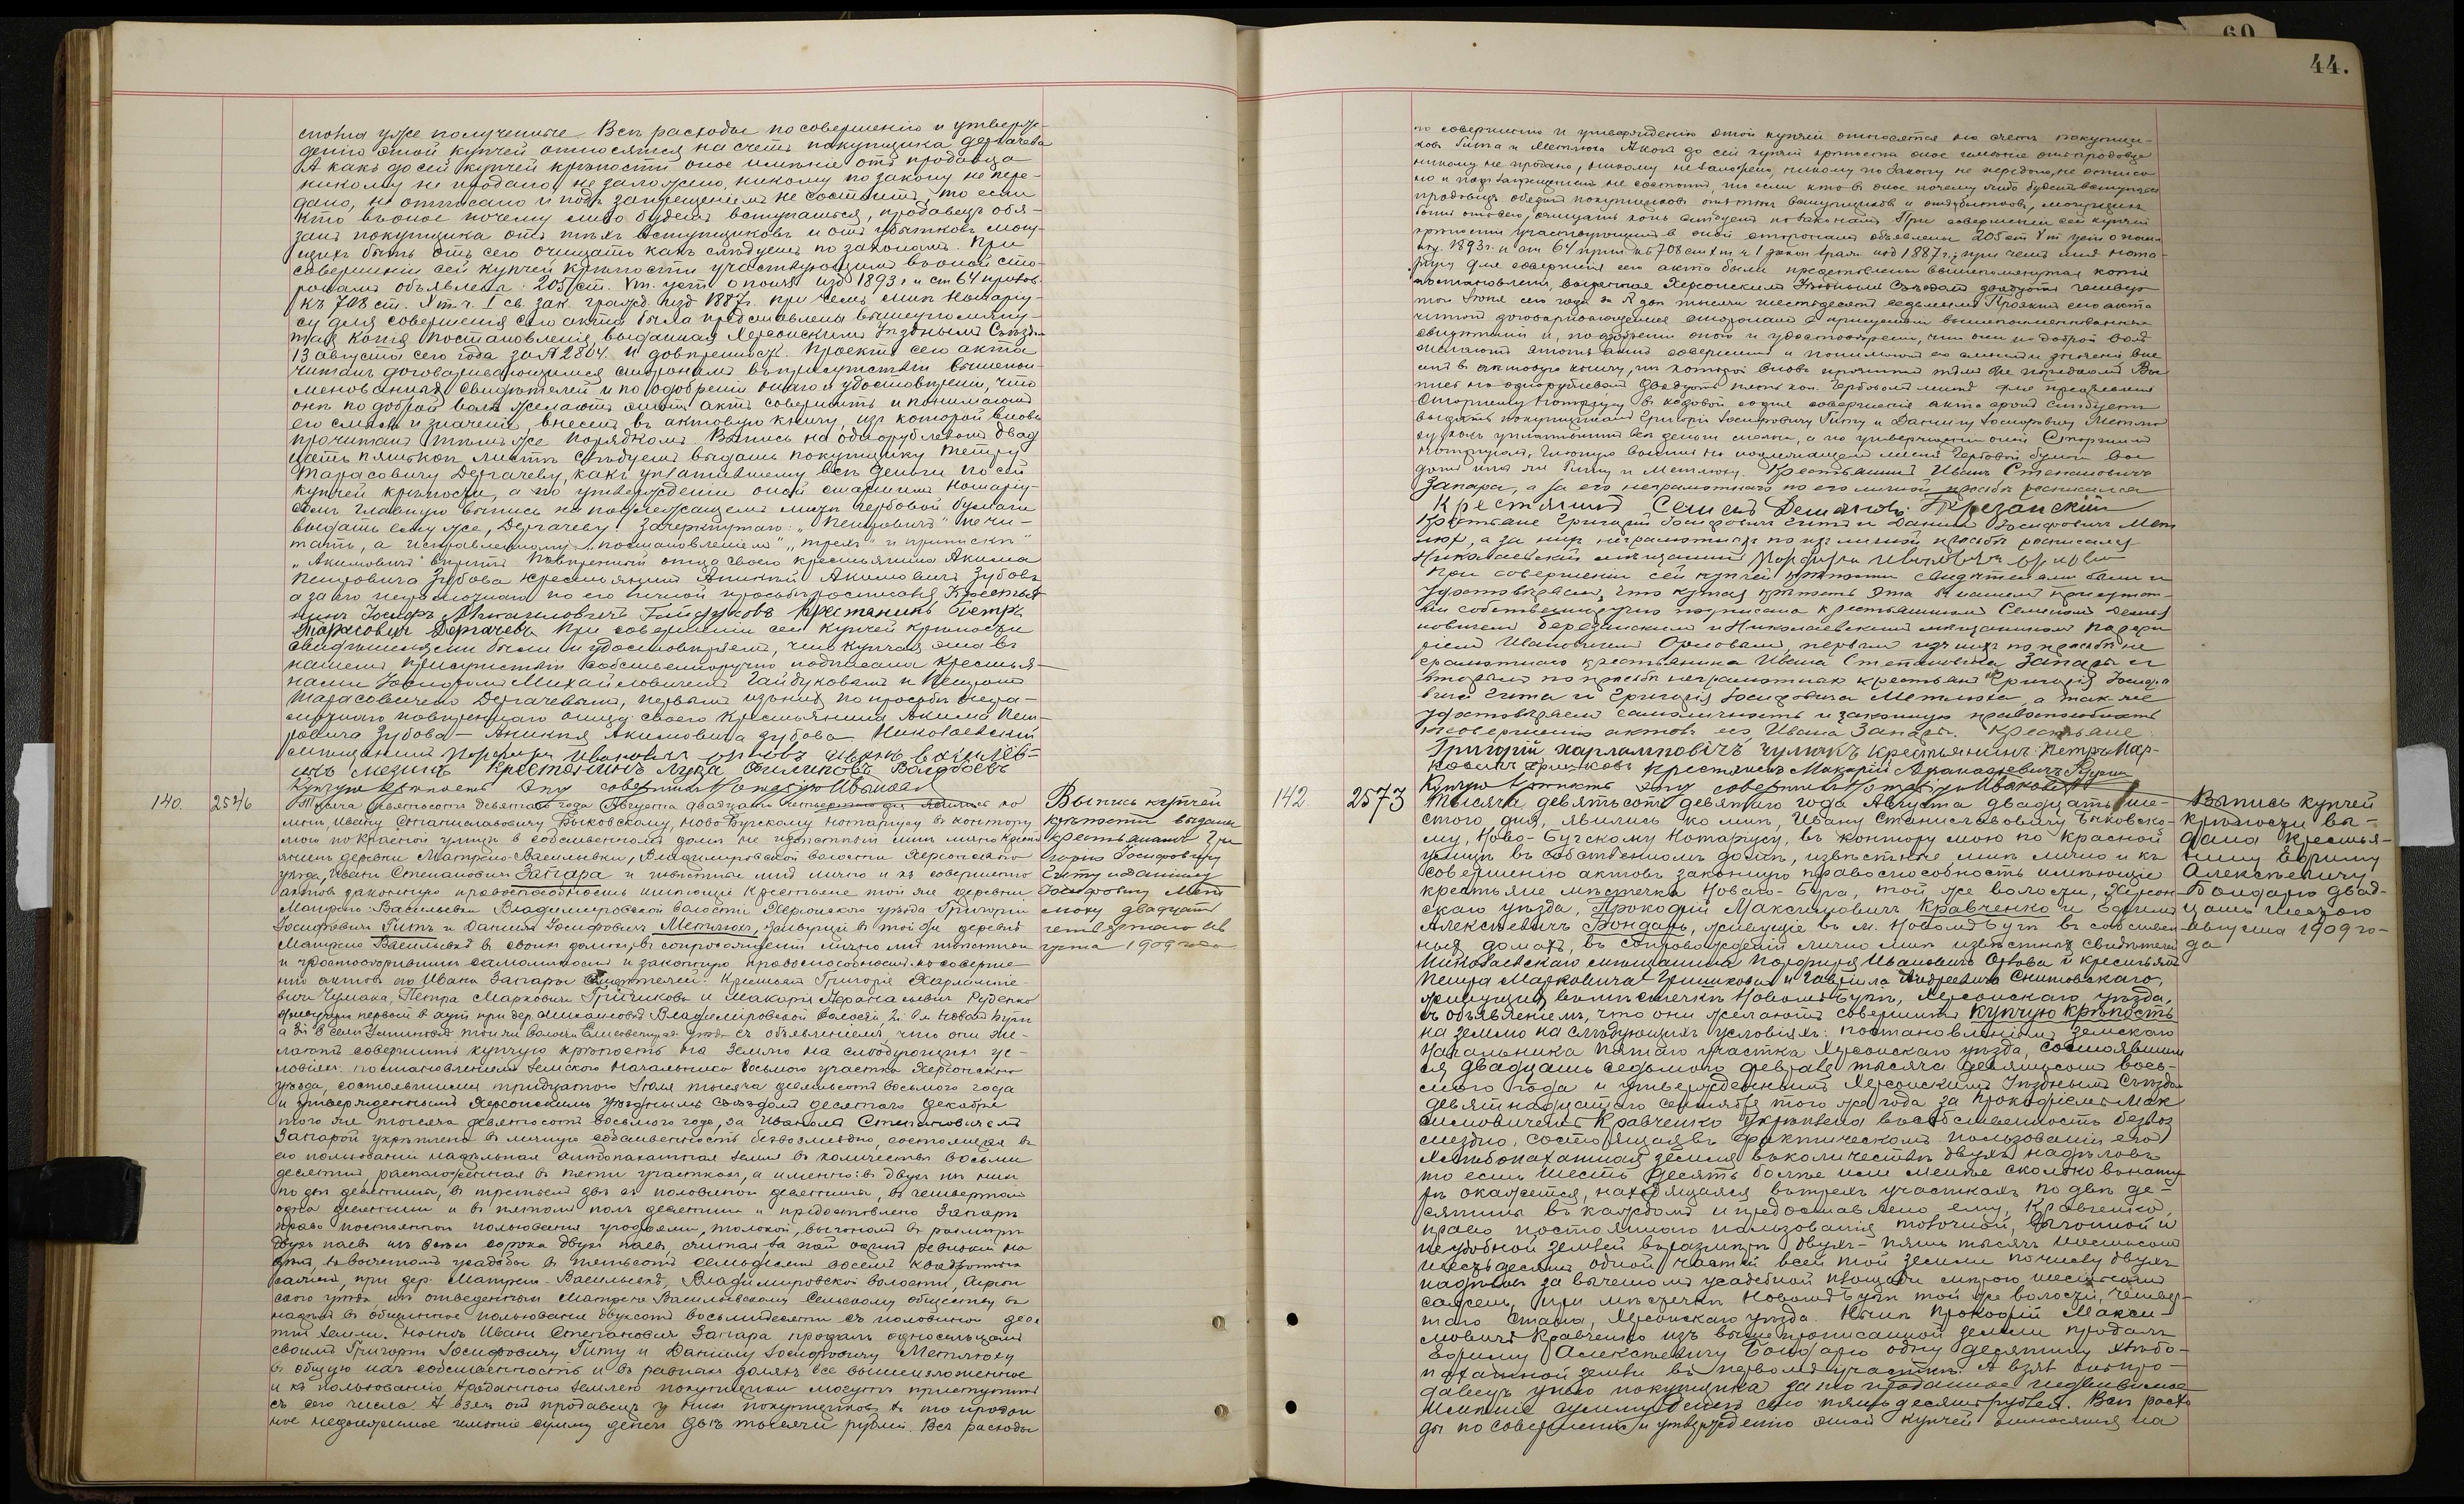 60
44.
снова уже полученные. Все расходы по совершенію и утверж-
денію этой купчей относятся на счетъ покупщика Дергачева
А какъ до сей купчей крѣпости оное имѣніе отъ продавца
никому не продано, не заложено, никому по закону не пере-
дано, не отписано и подъ запрещеніемъ не состоитъ, то если
кто въ оное почему либо будетъ вступаться, продавецъ обя-
занъ покупщика отъ тѣхъ вступщиковъ и отъ убытковъ могу-
щихъ быть отъ сего очищать какъ слѣдуетъ по законамъ. При
совершеніи сей купчей крѣпости участвующимъ въ оной сто-
ронамъ объявлены: 205 ст. V т. уст. о пошл. изд. 1893 г. и ст. 64 прилож.
къ 708 ст. X т. ч. I св. зак. гражд. изд. 1887 г. при чемъ мнѣ Нотаріу-
су для совершенія сего акта была представлены вышеупомяну-
тая копія постановленія, выданная Херсонскимъ Уѣзднымъ Съѣздомъ
13 августа сего года за № 2804. и довѣренность. Проектъ сего акта
читанъ договаривающимся сторонамъ въ присутствіи вышепои-
менованныхъ свидѣтелей и по одобреніи онаго и удостовѣреніи, что
они по доброй волѣ желаютъ этотъ актъ совершить и понимаютъ
его смыслъ и значеніе, внесенъ въ актовую книгу, изъ которой вновь
прочитанъ тѣмъ же порядкомъ. Выпись на однорублевомъ двад
цать пять коп. листѣ слѣдуетъ выдать покупщику Петру
Тарасовичу Дергачеву, какъ уплатившему всѣ деньги по сей
купчей крѣпости, а по утвержденіи оной старшимъ Нотаріу-
сомъ главную выпись на подлежащемъ листѣ гербовой бумаги
выдать ему же, Дергачеву. Зачеркнутаго: „Петровичъ" не чи-
тать, а исправленному: „постановленіемъ", „трехъ" и приписки
„Акимовичъ" вѣрить. Повѣренный отца своего крестьянина Акима
Петровича Зубова крестьянинъ Ананій Акимовичъ Зубовъ
а за его неграмотнаго по его личной просьбѣ росписался Крестья
нинъ Іосифъ Михаиловичъ Гайдуковъ Крестянинъ Петръ
Тарасовичъ Дергачевъ При совершеніи сей купчей крѣпости
свидѣтелями были и удостовѣряемъ, что купчая эта въ
нашемъ присутствіи собственноручно подписана крестья-
нами Іосифомъ Михайловичемъ Гайдуковымъ и Петромъ
Тарасовичемъ Дергачевымъ, первымъ изъ нихъ по просьбѣ негра-
мотнаго повѣреннаго отца своего крестьянина Акима Пет-
ровича Зубова – Ананія Акимовича Зубова Николаевскій
мѣщанинъ Порфирій Ивановичъ Орловъ
Крестянинъ Лука Филиповъ
Купчую крѣпость эту совершилъ Нотаріусъ
140.
2546
Тысяча девятьсотъ девятаго года Августа двадцать четвертаго дня явились ко
мнѣ, Ивану Станиславовичу Быковскому, Ново Бугскому нотаріусу въ контору
мою по красной улицѣ въ собственномъ домѣ не извѣстный мнѣ лично кресть
янинъ деревни Матрено-Васильевки, Владимировской волости Херсонскаго
уѣзда, Иванъ Степановичъ Запара и извѣстные мнѣ лично и къ совершенію
актовъ законную правоспособность имѣющіе Крестьяне той же деревни
Матрено-Васильевки Владимировской волости Херсонскаго уѣзда Григорій
Іосифовичъ Гитъ и Даніилъ Іосифовичъ Метлюкъ, живущіе въ той же деревнѣ
Матрено Васильевкѣ въ своихъ домахъ, въ сопровожденіи лично мнѣ извѣстныхъ
и удостовѣрившихъ самоличность и законную правоспособность къ соверше-
нію актовъ его Ивана Запары свидѣтелей: Крестьянъ Григорія Харлампіе-
вича Чумака, Петра Марковича Гришкова и Макарія Афанасьевича Руденко
лаютъ совершить купчую крѣпость на землю на слѣдующихъ ус-
ловіяхъ: постановленіемъ Земскаго Начальника восьмого участка Херсонскаго
уѣзда, состоявшимся тридцатаго Іюля тысяча девятьсотъ восьмого года
и утвержденнымъ Херсонскимъ Уѣзднымъ Съѣздомъ десятаго Декабря
того же тысяча девятьсотъ восьмого года, за Иваномъ Степановичемъ
Запарой укрѣплена въ личную собственность безвозмездно, состоящая въ
его пользованіи надѣльная хлѣбопахатная земля въ количествѣ восьми
десятинъ, расположенная въ пяти участкахъ, а именно: въ двухъ изъ нихъ
по двѣ десятины, въ третьемъ двѣ съ половиной десятины, въ четвертомъ
одна десятина и въ пятомъ полъ десятины и предоставлено Запарѣ
право постояннаго пользованія угодьями, толокой, выгономъ въ размѣрѣ
двухъ паевъ изъ всѣхъ сорока двухъ паевъ, считая за пай одинъ ревизскій на
дѣлъ, за вычетомъ усадьбы въ пятьсотъ семьдесятъ восемь квадратныхъ
сажень, при дер. Матрено-Васильевкѣ, Владимировской волости, Херсон
скаго уѣзда изъ отведенныхъ Матрено Васильевскому Сельскому обществу въ
надѣлъ въ общинное пользованіе двухсотъ восьмидесяти съ половиною деся
тинъ земли. Нынѣ Иванъ Степановичъ Запара продалъ односельцамъ
своимъ Григорію Іосифовичу Гиту и Даніилу Іосифовичу Метлюку
въ общую ихъ собственность и въ равныхъ доляхъ все вышеизложенное
и къ пользованію проданною землею покупщики могутъ приступить
съ сего числа. А взялъ онъ продавецъ у нихъ покупщиковъ за то продан
ное недвижимое имѣніе сумму денегъ двѣ тысячи рублей. Всѣ расходы
Выпись купчей
крѣпости выдана
крестьянамъ Гри
горію Іосифовичу
Гиту и Даніилу
Іосифовичу Мет
люку двадцать
четвертаго Ав
густа 1909 года
по совершенію и утвержденію этой купчей относятся на счетъ покупщи-
ковъ Гита и Метлюка А какъ до сей купчей крѣпости оное имѣніе отъ продавца
никому не продано, никому не заложено, никому по закону не передано, не отписа-
но и подъ запрещеніемъ не состоитъ, то если кто въ оное почему либо будетъ вступаться
продавецъ обязанъ покупщиковъ отъ тѣхъ вступщиковъ и отъ убытковъ, могущихъ
быть отъ сего, очищать какъ слѣдуетъ по законамъ При совершеніи сей купчей
крѣпости участвующимъ въ оной сторонамъ объявлены 205 ст V т уст о пошл
изд. 1893 г. и ст 64 прил къ 708 ст X т ч 1 закон гражд изд 1887 г., при чемъ мнѣ нота-
ріусу для совершенія сего акта была представлены вышеупомянутая копія
постановленія, выданная Херсонскимъ Уѣзднымъ Съѣздомъ двадцать четвер-
таго Іюня сего года за № двѣ тысячи шестьдесятъ седьмымъ Проектъ сего акта
читанъ договаривающимся сторонамъ въ присутствіи вышепоименованныхъ
свидѣтелей и, по одобреніи онаго и удостовѣреніи, что они по доброй волѣ
желаютъ этотъ актъ совершить и понимаютъ его смыслъ и значеніе вне
сенъ въ актовую книгу, изъ которой вновь прочитанъ тѣмъ же порядкомъ Вы
пись на однорублевомъ двадцать пять коп. гербовомъ листѣ
выдать покупщикамъ Григорію Іосифовичу Гиту и Даніилу Іосифовичу Метлю
ку, какъ уплатившимъ всѣ деньги сполна, а по утвержденіи оной Старшимъ
Нотаріусомъ, главную выпись на подлежащемъ листѣ гербовой бумаги вы
дать имъ же Гиту и Метлюку. Крестьянинъ Иванъ Степановичъ
Запара, а за его неграмотнаго по его личной просьбѣ росписался
Крестянинъ Семенъ Демяновъ Березанскій
Крестьяне Григорій Іосифовичъ Гитъ и Даніилъ Іосифовичъ Мет
люкъ, а за нихъ неграмотныхъ по ихъ личной просьбѣ росписался
Николаевскій мѣщанинъ Порфирій Ивановичъ Орловъ
При совершеніи сей купчей крѣпости свидѣтелями были и
удостовѣряемъ, что купчая крѣпость эта въ нашемъ присутст-
віи собственноручно подписана крестьяниномъ Семеномъ Демья
новичемъ Березанскимъ и Николаевскимъ мѣщаниномъ Порфи
ріемъ Ивановичемъ Орловымъ, первымъ изъ нихъ по просьбѣ не
грамотнаго крестьянина Ивана Степановича Запары и
вторымъ по просьбѣ неграмотныхъ крестьянъ Григорія Іосифо
вича Гита и Григорія Іосифовича Метлюка, а также
удостовѣряемъ самоличность и законную правоспособность
къ совершенію актовъ его Ивана Запары. Крестьяне:
Григорій Харлампіовичъ Чумакъ Крестьянинъ Петръ Мар-
ковичъ Гришковъ Крестянинъ Макарій Афанасіевичъ
Купчую крѣпость эту совершилъ Нотаріусъ
142.
2573
Тысяча девятьсотъ девятаго года Августа двадцать ше-
стого дня, явились ко мнѣ, Ивану Станиславовичу Быковско-
му, Ново-Бугскому Нотаріусу, въ контору мою по Красной
улицѣ въ собственномъ домѣ, извѣстные мнѣ лично и къ
совершенію актовъ законную правоспособность имѣющіе
крестьяне мѣстечка Новаго-Буга, той же волости, Херсон-
скаго уѣзда, Прокофій Максимовичъ Кравченко и Ефимъ
Алексѣевичъ Бондарь, живущіе въ м. Новомъ Бугѣ въ собствен-
ныхъ домахъ, въ сопровожденіи лично мнѣ извѣстныхъ свидѣтелей
Николаевскаго мѣщанина Порфирія Ивановича Орлова и крестьянъ
Петра Марковича Гришкова и Гавріила Андреевича Снитовскаго,
живущихъ въ мѣстечкѣ Новомъ Бугѣ, Херсонскаго уѣзда,
съ объявленіемъ, что они желаютъ совершить купчую крѣпость
на землю на слѣдующихъ условіяхъ: постановленіемъ Земскаго
Начальника пятаго участка Херсонскаго уѣзда, состоявшим
ся двадцать седьмого февраля тысяча девятьсотъ вось-
мого года и утвержденнымъ Херсонскимъ Уѣзднымъ Съѣздомъ
девятнадцатаго сентября того же года за Прокофіемъ Мак
симовичемъ Кравченко укрѣплена въ собственность безвоз
мездно, состоящая въ фактическомъ пользованіи его
хлѣбопахатная земля въ количествѣ двухъ надѣловъ
то есть шесть десятинъ болѣе или менѣе сколько въ натур
ѣ окажется, находящаяся въ трехъ участкахъ по двѣ де-
сятины въ каждомъ и предоставлено ему, Кравченко,
право постояннаго пользованія толочной, выгонной и
неудобной землей въ размѣрѣ двухъ- пять тысячъ шестьсотъ
шестьдесятъ одной частей всей той земли по числу двухъ
надѣловъ за вычетомъ усадебной площади мѣрою шестьсотъ
сажень, при мѣстечкѣ Новомъ Бугѣ той же волости, четвер-
таго стана, Херсонскаго уѣзда. Нынѣ Прокофій Макси-
мовичъ Кравченко изъ вышеописанной земли продалъ
Ефиму Алексѣевичу Бондарю одну десятину хлѣбо-
пахатной земли въ первомъ участкѣ. А взялъ онъ про-
давецъ у него покупщика за то проданное недвижимое
имѣніе сумму денегъ сто пятьдесятъ рублей. Всѣ расхо
ды по совершенію и утвержденію этой купчей относятся на
Выпись купчей
крѣпости вы-
дана крестья-
нину Ефиму
Алексѣевичу
Бондарю двад-
цать шестого
августа 1909 го-
да